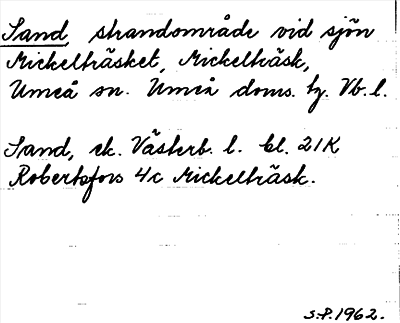 Sand, strandområde vid sjön
Mickelträsket, Mickelträsk,
Umeå sn. Umeå doms. tg. Vb. l.
Sand, ek. Västerb. l. bl. 21K
Robertsfors 4c Mickelträsk.
S.P. 1962.